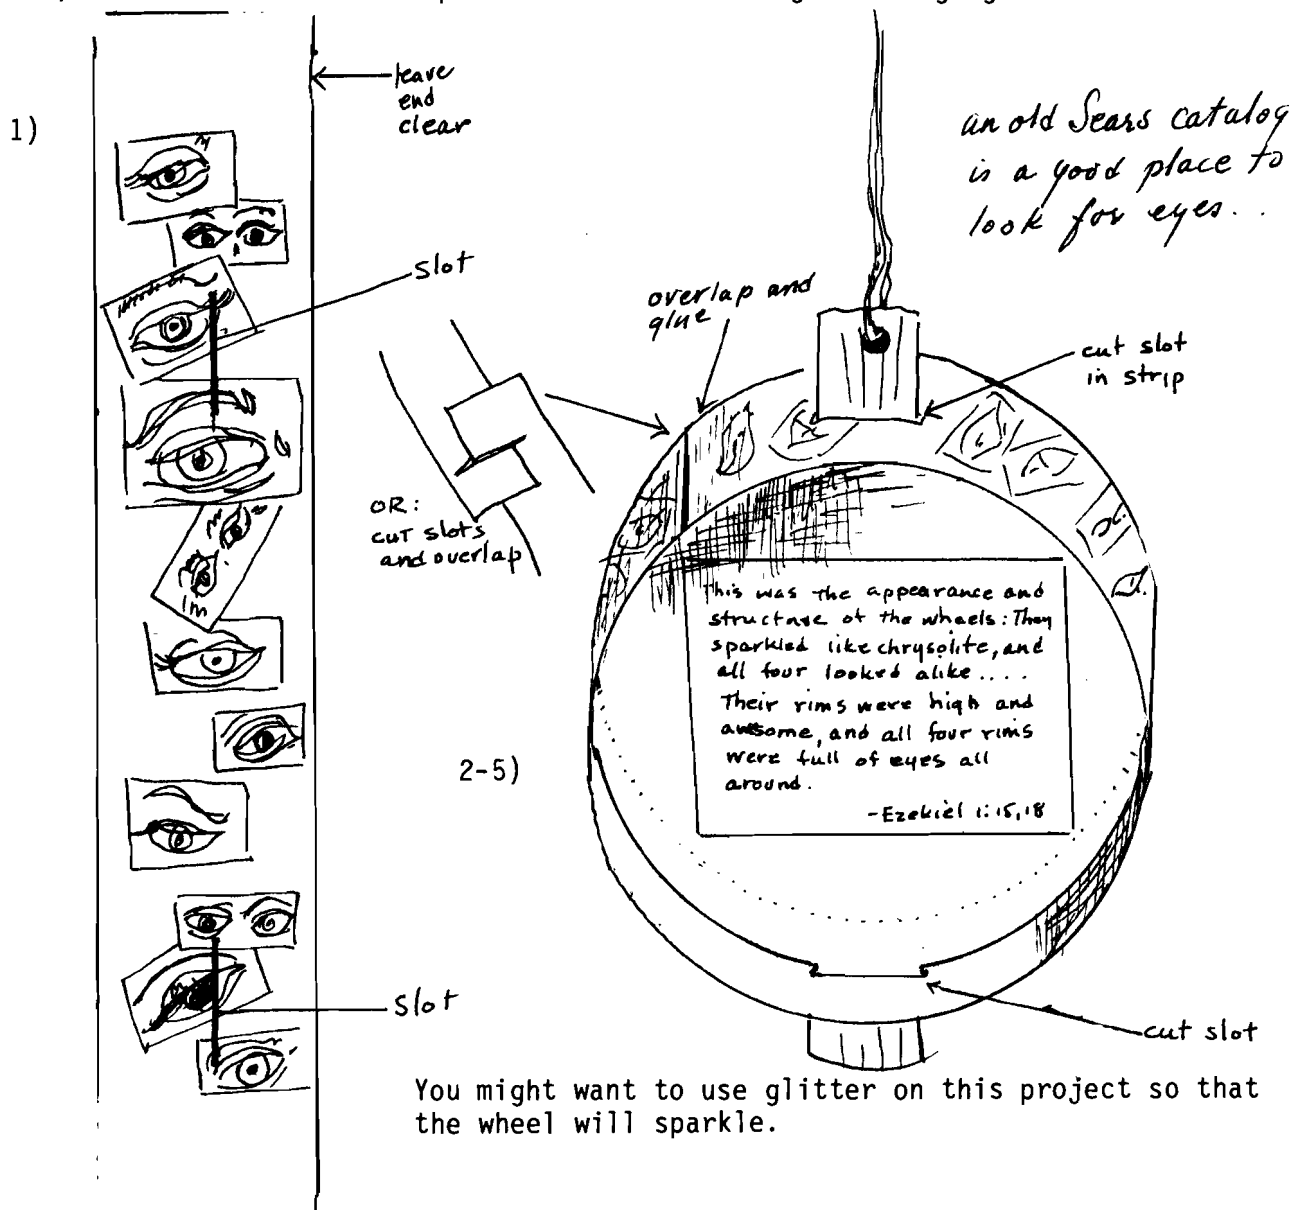 1)
leave
end
clear
an old Sears catalog
is a good place to
look for eyes..
slot
overlap and
glue
cut slot
in strip
OR:
cut slots
and overlap
This was the appearance and
structure of the wheels: They
sparkled like chrysolite, and
all four looked alike....
Their rims were high and
awsome, and all four rims
were full of eyes all
around.
-Ezekiel 1:15,18
2-5)
slot
cut slot
You might want to use glitter on this project so that
the wheel will sparkle.